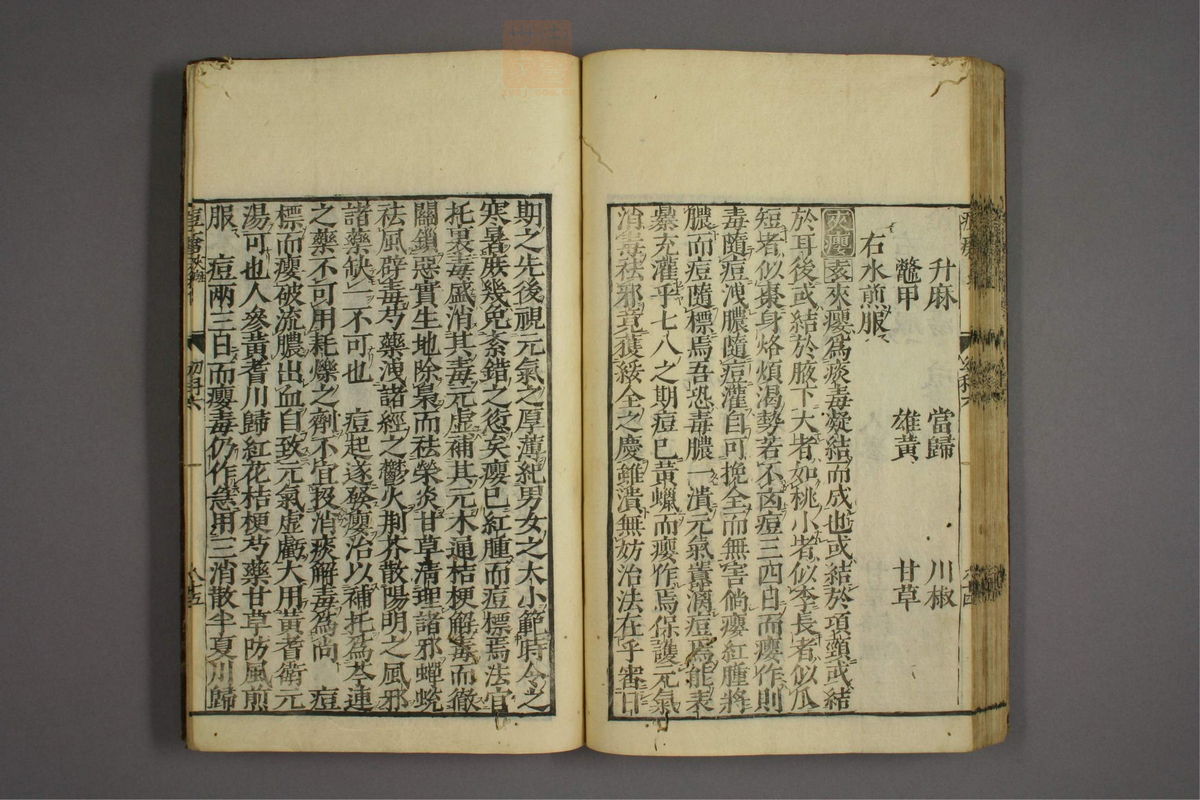 升麻 當歸 川椒
鼈甲 雄黃 甘草
右水煎服
夾癭 玄夾癭爲痰毒凝結而成也或結於項頸或結
於耳後或結於腋下大者如桃小者似李長者似瓜
短者似棗身烙煩渴勢若不囪痘三四日而癭作則
毒隨痘洩膿隨痘灌自可挽全而無害倘癭紅腫將
膿而痘隨標焉吾恐毒膿一潰元氣蕭漓痘焉能表
暴充灌乎七八之期痘已黃蠟而癭作焉保護元氣
消毒祛邪竟獲綏全之慶雖潰無妨治法在乎審日
期之先後視元氣之厚薄紀男女之大小範時令之
寒暑庶幾免紊錯之愆矣癭已紅腫而痘標焉法官
托裏毒盛消其毒元虛補其元木通桔梗解毒而徹
關鎖惡實生地除臬而祛榮炎甘草清理諸邪蟬蛻
祛風辟毒芍藥洩諸經之鬱火荆芥散陽明之風邪
諸藥缺一不可也 痘起遂發癭治以補托爲芩連
之藥不可用耗爍之劑不宜投消痰解毒爲尚 痘
標而癭破流膿出血自致元氣虛虧大用黃耆衛元
湯可也人參黃耆川歸紅花桔梗芍藥甘草防風煎
服 痘兩三日而癭毒仍作急用三消散半夏川歸